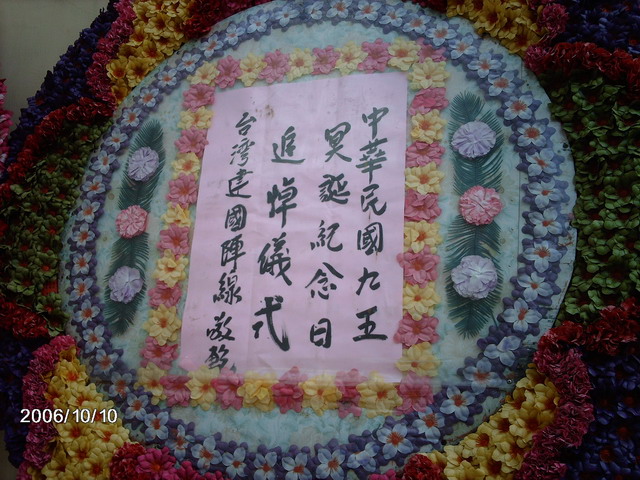 中華民國九五
冥誕紀念日
追悼儀式
台灣建國陣線 敬輓
2006/10/10